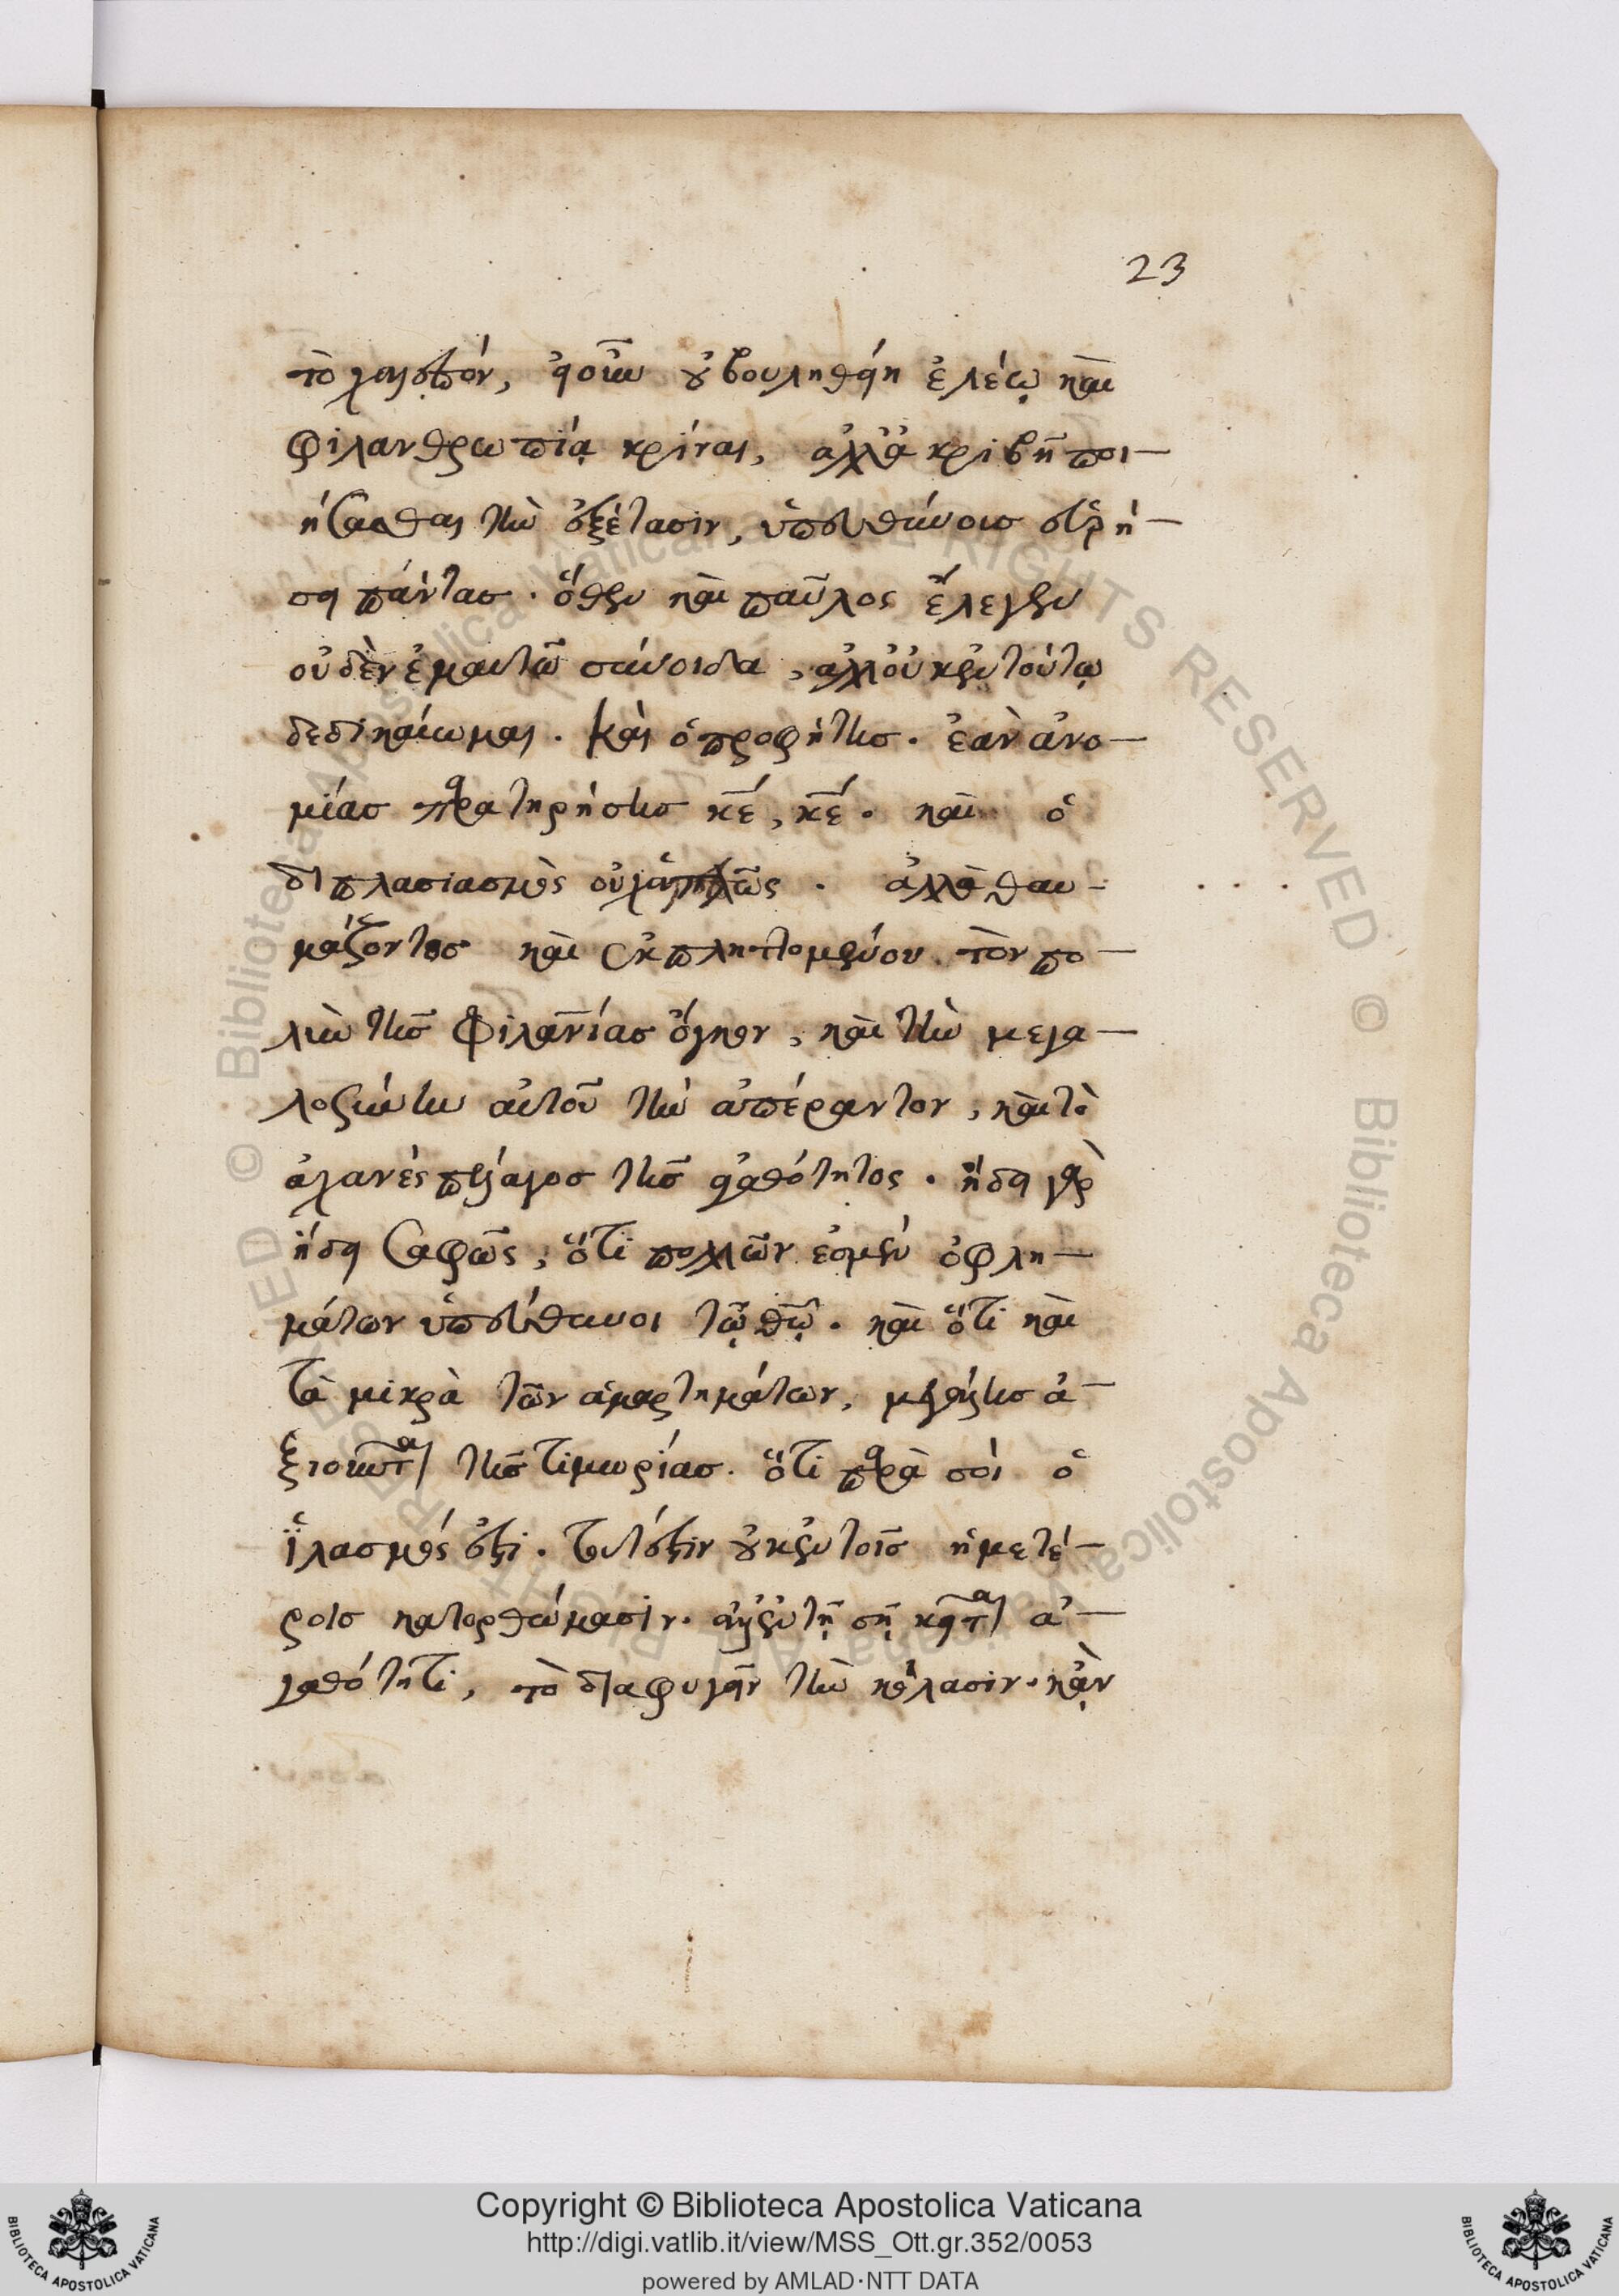 23
τὸ χρηστὸν, εἰ οὖν οὐ βουληθείη ἐλέῳ καὶ
φιλανθρωπίᾳ κρίναι, ἀλλὰ ἀκριβῆ ποι-
ήσασθαι τὴν ἐξέτασιν, ὑπευθύνοισ εὑρή-
σει πάντασ. ὅθεν καὶ παῦλος ἔλεγεν
οὐδὲν ἐμαυτῶ σύνοιδα, ἀλλ' οὐκ ἐν τούτῳ
δεδικαίωμαι. Καὶ ὁ προφήτησ. ἐὰν ἀνο-
μίασ παρατηρήσησ κε, κε. καὶ ὁ
διπλασιασμὸς οὐχ ἁπλῶς. ἀλλὰ θαυ-
μάζοντοσ καὶ ἐκπληττομένου τὸν πο-
λὺν τῆσ φιλανίασ ὄγκον, καὶ τὴν μεγα-
λοσύνην αὐτοῦ τὴν ἀπέραντον, καὶ τὸ
ἀχανὲς πέλαγοσ τῆσ ἀγαθότητος. ἤδει γὰρ
ἤδει σαφῶς, ὅτι πολλῶν ἐσμὲν ὀφλη-
μάτων ὑπεύθυνοι τῶ θῶ. καὶ ὅτι καὶ
τὰ μικρὰ τῶν ἁμαρτημάτων, μεγίστησ ἀ-
ξιοῦται τῆσ τιμωρίασ. ὅτι παρὰ σοὶ ὁ
ἱλασμός ἐστι. τουτέστιν οὐκ ἐν τοῖσ ἡμετέ-
ροισ κατορθώμασιν. ἀλλ' ἐν τῆ σῆ κεῖται ἀ-
γαθότητι, τὸ διαφυγεῖν τὴν κόλασιν. κἂν
Copyright © Biblioteca Apostolica Vaticana
http://digi.vatlib.it/view/MSS_Ott.gr.352/0053
powered by AMLAD·NTT DATA